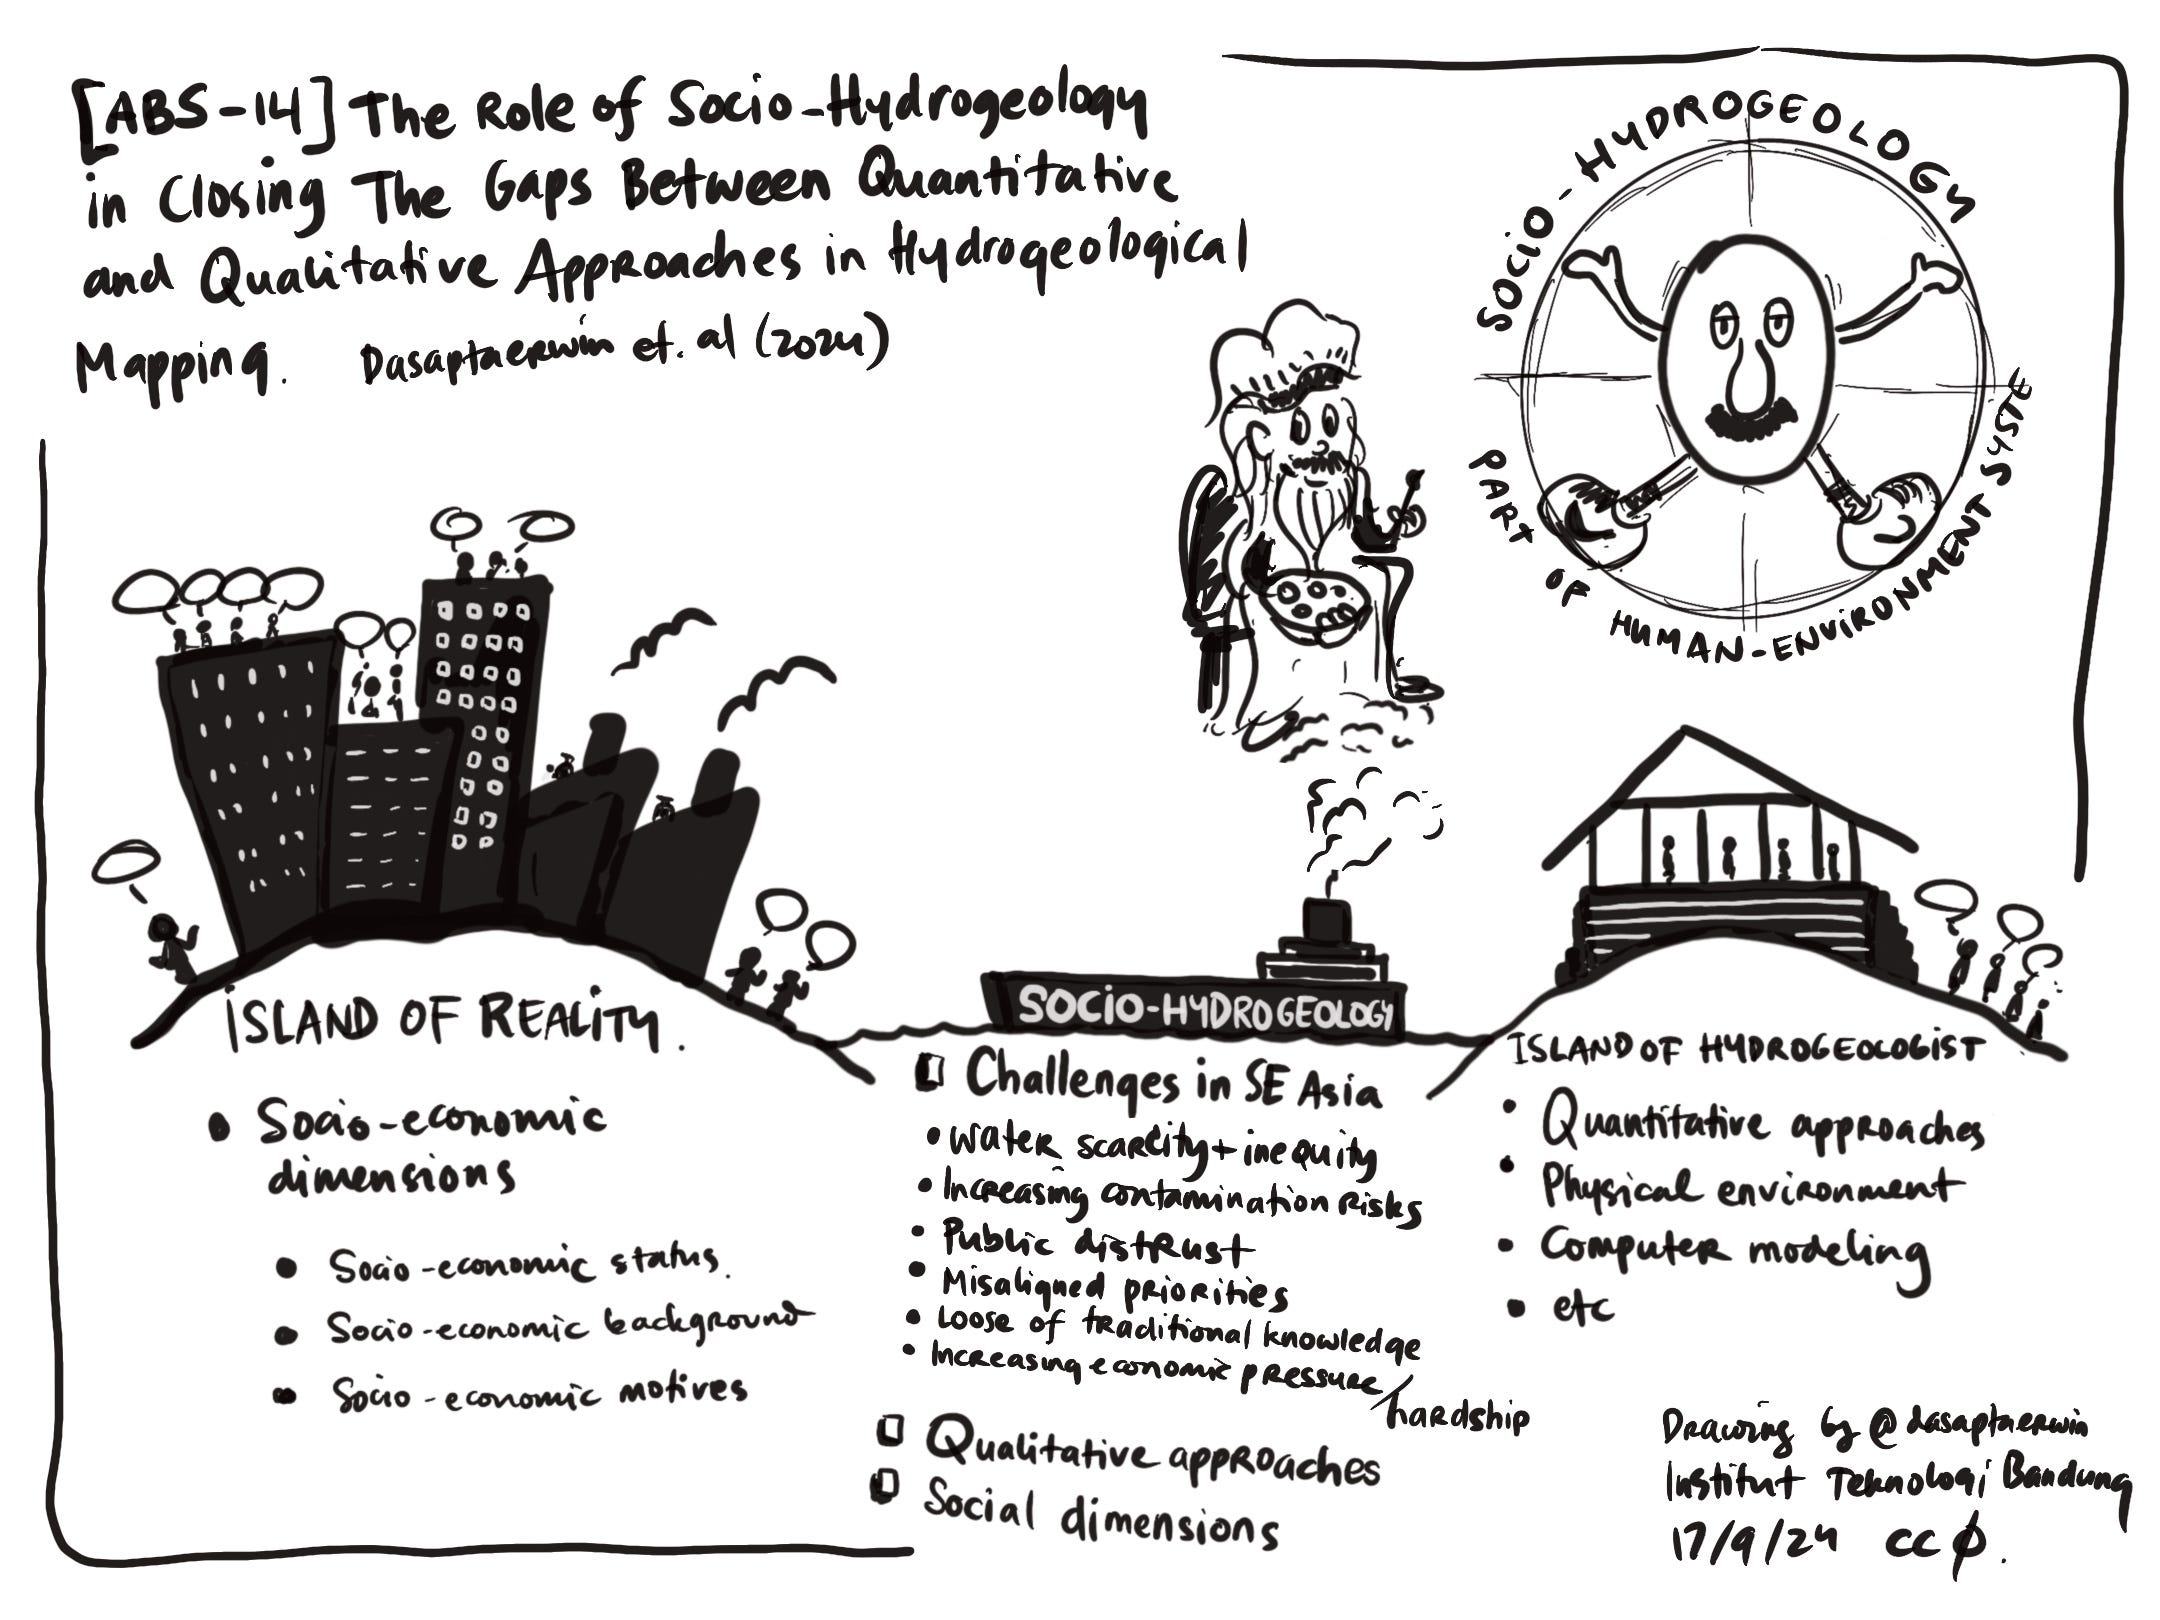 [ABS-14] The Role of Socio-Hydrogeology
in Closing The Gaps Between Quantitative
and Qualitative Approaches in Hydrogeological
Mapping. Dasaptaerwin et. al (2024)
SOCIO-HYDROGEOLOGY
PART OF HUMAN-ENVIRONMENT SYSTE
SOCIO-HYDROGEOLOGY
ISLAND OF REALITY.
• Socio-economic
dimensions
• Socio-economic status.
• Socio-economic background
• Socio-economic motives
Challenges in SE Asia
• Water scarcity + inequity
• Increasing contamination risks
• Public distrust
• Misaligned priorities
• Loose of traditional knowledge
• Increasing economic pressure/
hardship
Qualitative approaches
Social dimensions
ISLAND OF HYDROGEOLOGIST
• Quantitative approaches
• Physical environment
• Computer modeling
• etc
Drawing by @dasaptaerwin
Institut Teknologi Bandung
17/9/24 CC∅.